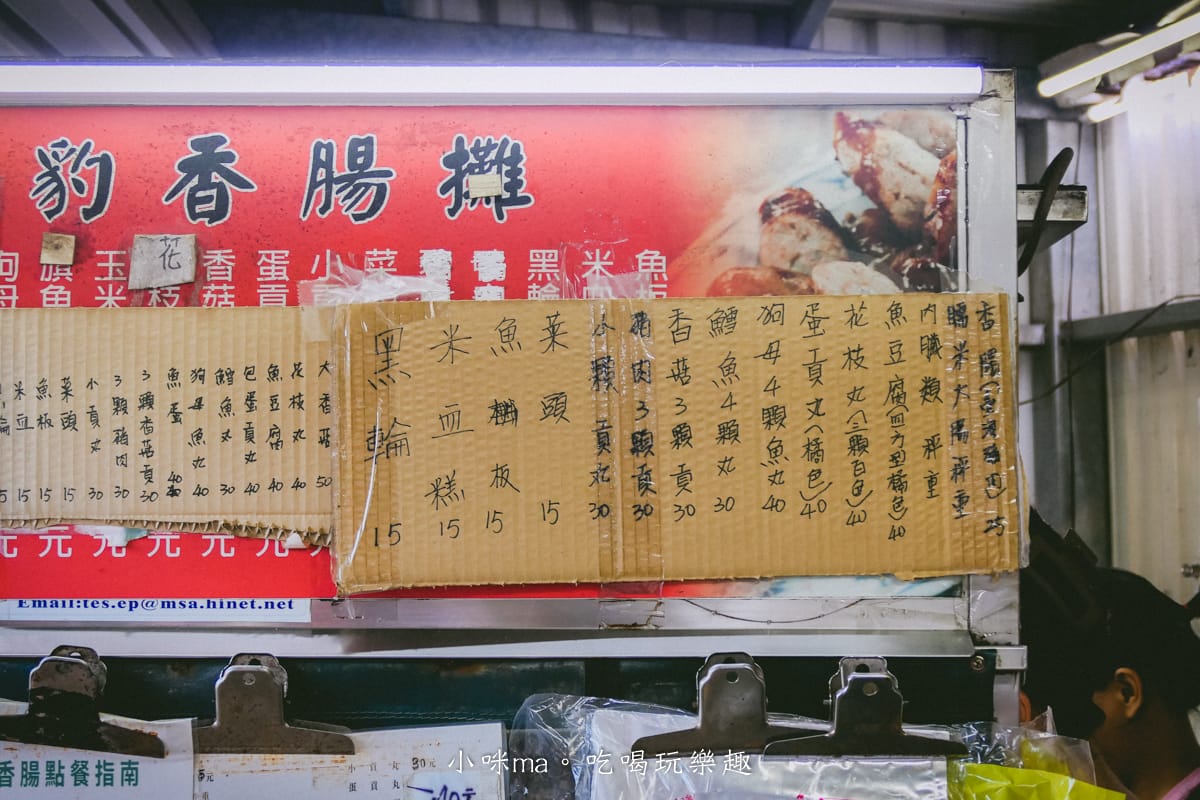 豹香腸攤
花
玉米
香菇
蛋貢
小
菜
黑輪
米血
魚板
香腸(香腸瘦肉) 25
腸米大腸秤重
內臟類 秤重
魚豆腐(四方型橘色) 40
花枝丸(三顆白色) 40
蛋貢丸(橘色) 40
狗母4顆魚丸 40
鱈魚4顆丸 30
香菇3顆貢 30
豬肉3顆貢 30
小顆貢丸 30
菜頭 15
魚板 15
米血糕 15
黑輪 15
大香菇 50
花枝丸 40
魚豆腐 40
包蛋貢丸 40
鱈魚丸 30
狗母魚丸 40
魚蛋 40
3顆香菇貢 30
3顆豬肉 30
小貢丸 30
菜頭 15
魚板 15
米血 15
元元元元元元
Email:tes.ep@msa.hinet.net
香腸點餐指南
小貢丸 30元
蛋貢丸 40元
小咪ma。吃喝玩樂趣